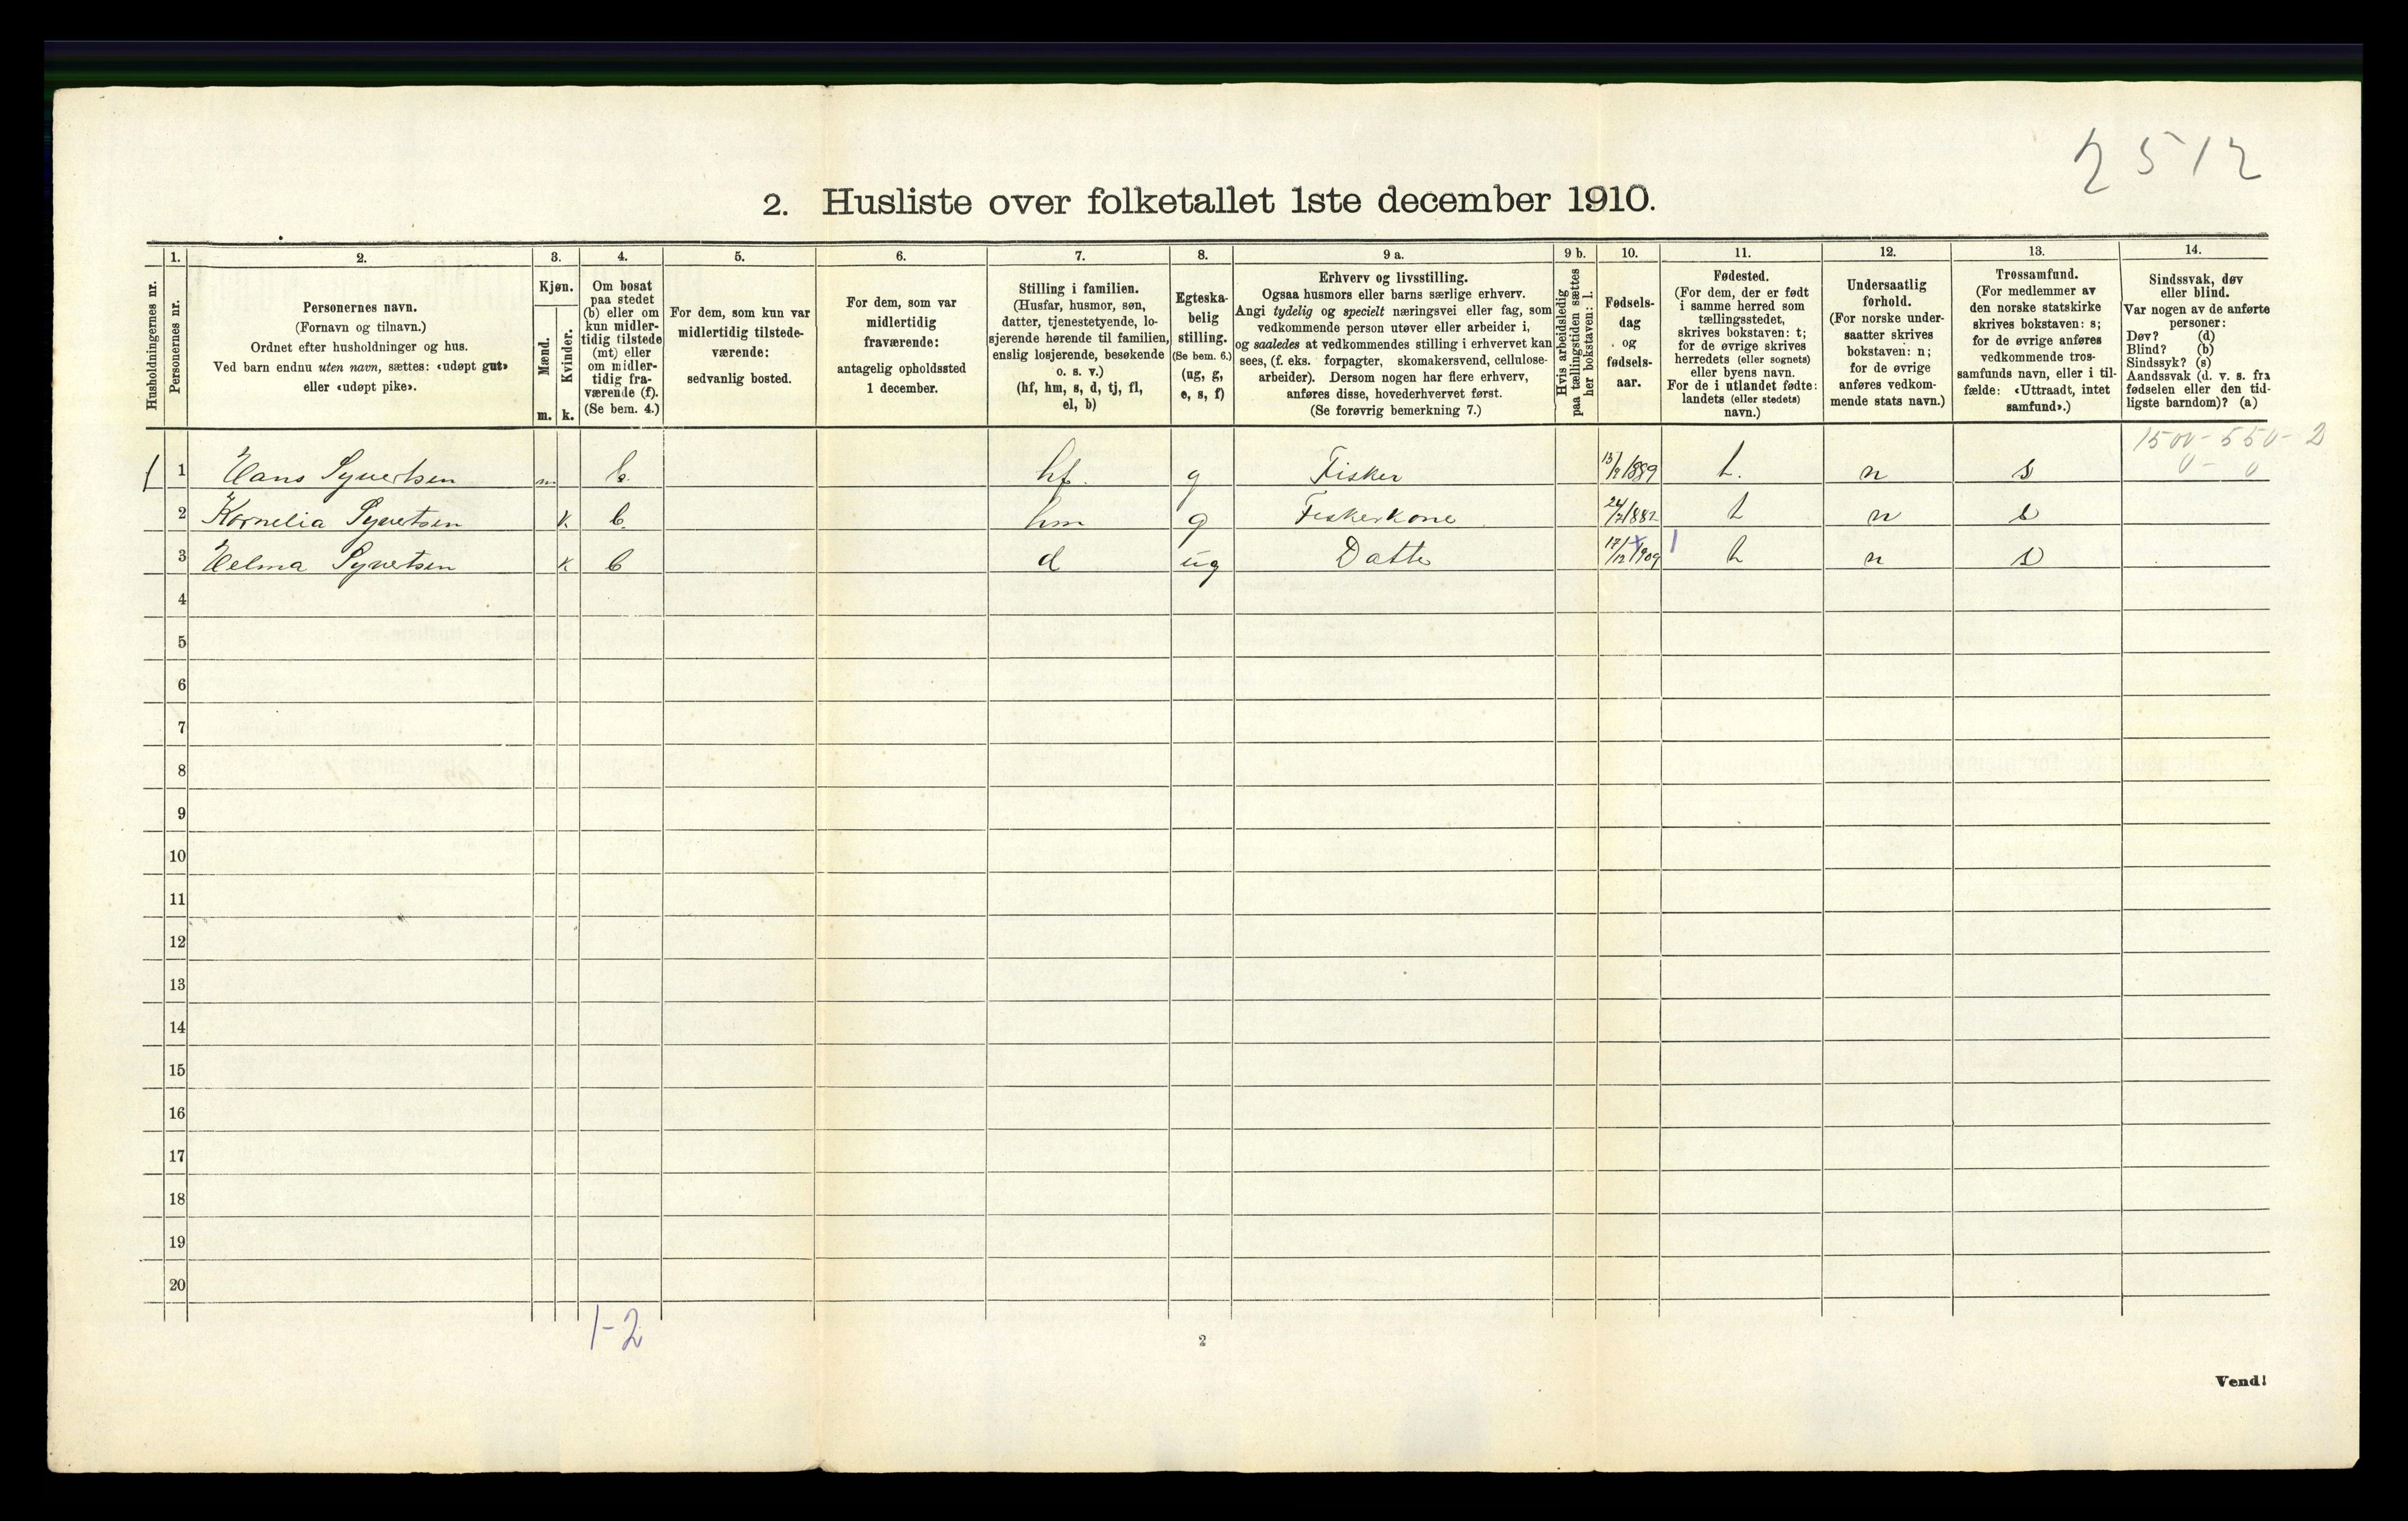 2512
2. Husliste over folketallet 1ste december 1910.
Husholdningernes nr.
1.
Personernes nr.
2.
Personernes navn.
(Fornavn og tilnavn.)
Ordnet efter husholdninger og hus.
Ved barn endnu uten navn, sættes: «udøpt gut»
eller «udøpt pike».
3.
Kjøn.
Mænd.
Kvinder.
m. k.
4.
Om bosat
paa stedet
(b) eller om
kun midler-
tidig tilstede
(mt) eller
om midler-
tidig fra-
værende (f).
(Se bem. 4.)
5.
For dem, som kun var
midlertidig tilstede-
værende:
sedvanlig bosted.
6.
For dem, som var
midlertidig
fraværende:
antagelig opholdssted
1 december.
7.
Stilling i familien.
(Husfar, husmor, søn,
datter, tjenestetyende, lo-
sjerende hørende til familien,
enslig losjerende, besøkende
o. s. v.)
(hf, hm, s, d, tj, fl,
el, b)
8.
Egteska-
belig
stilling.
(Se bem. 6.)
(ug, g,
e, s, f)
9 a.
Erhverv og livsstilling.
Ogsaa husmors eller barns særlige erhverv.
Angi tydelig og specielt næringsvei eller fag, som
vedkommende person utøver eller arbeider i,
og saaledes at vedkommendes stilling i erhvervet kan
sees, (f. eks. forpagter, skomakersvend, cellulose-
arbeider). Dersom nogen har flere erhverv,
anføres disse, hovederhvervet først.
(Se forøvrig bemerkning 7.)
9 b.
Hvis arbeidsledig
paa tællingstiden sættes
her bokstaven: l.
10.
Fødsels-
dag
og
fødsels-
aar.
11.
Fødested.
(For dem, der er født
i samme herred som
tællingsstedet,
skrives bokstaven: t;
for de øvrige skrives
herredets (eller sognets)
eller byens navn.
For de i utlandet fødte:
landets (eller stedets)
navn.)
12.
Undersaatlig
forhold.
(For norske under-
saatter skrives
bokstaven: n;
for de øvrige
anføres vedkom-
mende stats navn.)
13.
Trossamfund.
(For medlemmer av
den norske statskirke
skrives bokstaven: s;
for de øvrige anføres
vedkommende tros-
samfunds navn, eller i til-
fælde: «Uttraadt, intet
samfund».)
14.
Sindssvak, døv
eller blind.
Var nogen av de anførte
personer:
Døv? (d)
Blind? (b)
Sindssyk? (s)
Aandssvak (d. v. s. fra
fødselen eller den tid-
ligste barndom)? (a)
1500-550-2
0-0
1 Hans Syvertsen m b. hf. g Fisker t. n s
2 Kornelia Syvertsen k b. hm g Fiskerkone 24/7 1882 t n s
3 Helma Syvertsen k b d ug Datter 17/12 1909 t n s
4
5
6
7
8
9
10
11
12
13
14
15
16
17
18
19
20
1-2
2
Vend!